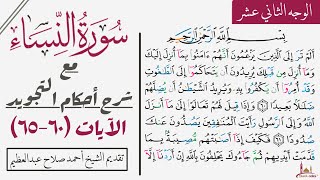 الوجه الثاني عشر
سُورَةُ النِّسَاءِ
مع
شرح أحكام التجويد
الآيات (٦٠-٦٥)
تقديم الشيخ أحمد صلاح عبدالعظيم
بِسْمِ ٱللَّهِ ٱلرَّحْمَٰنِ ٱلرَّحِيمِ
أَلَمْ تَرَ إِلَى ٱلَّذِينَ يَزْعُمُونَ أَنَّهُمْ ءَامَنُوا۟ بِمَآ أُنزِلَ إِلَيْكَ
وَمَآ أُنزِلَ مِن قَبْلِكَ يُرِيدُونَ أَن يَتَحَاكَمُوٓا۟ إِلَى ٱلطَّٰغُوتِ
وَقَدْ أُمِرُوٓا۟ أَن يَكْفُرُوا۟ بِهِۦ وَيُرِيدُ ٱلشَّيْطَٰنُ أَن يُضِلَّهُمْ
ضَلَٰلًۢا بَعِيدًا ٦٠ وَإِذَا قِيلَ لَهُمْ تَعَالَوْا۟ إِلَىٰ مَآ أَنزَلَ ٱللَّهُ
وَإِلَى ٱلرَّسُولِ رَأَيْتَ ٱلْمُنَٰفِقِينَ يَصُدُّونَ عَنكَ
صُدُودًا ٦١ فَكَيْفَ إِذَآ أَصَٰبَتْهُم مُّصِيبَةٌۢ بِمَا
قَدَّمَتْ أَيْدِيهِمْ ثُمَّ جَآءُوكَ يَحْلِفُونَ بِٱللَّهِ إِنْ أَرَدْنَآ إِلَّآ